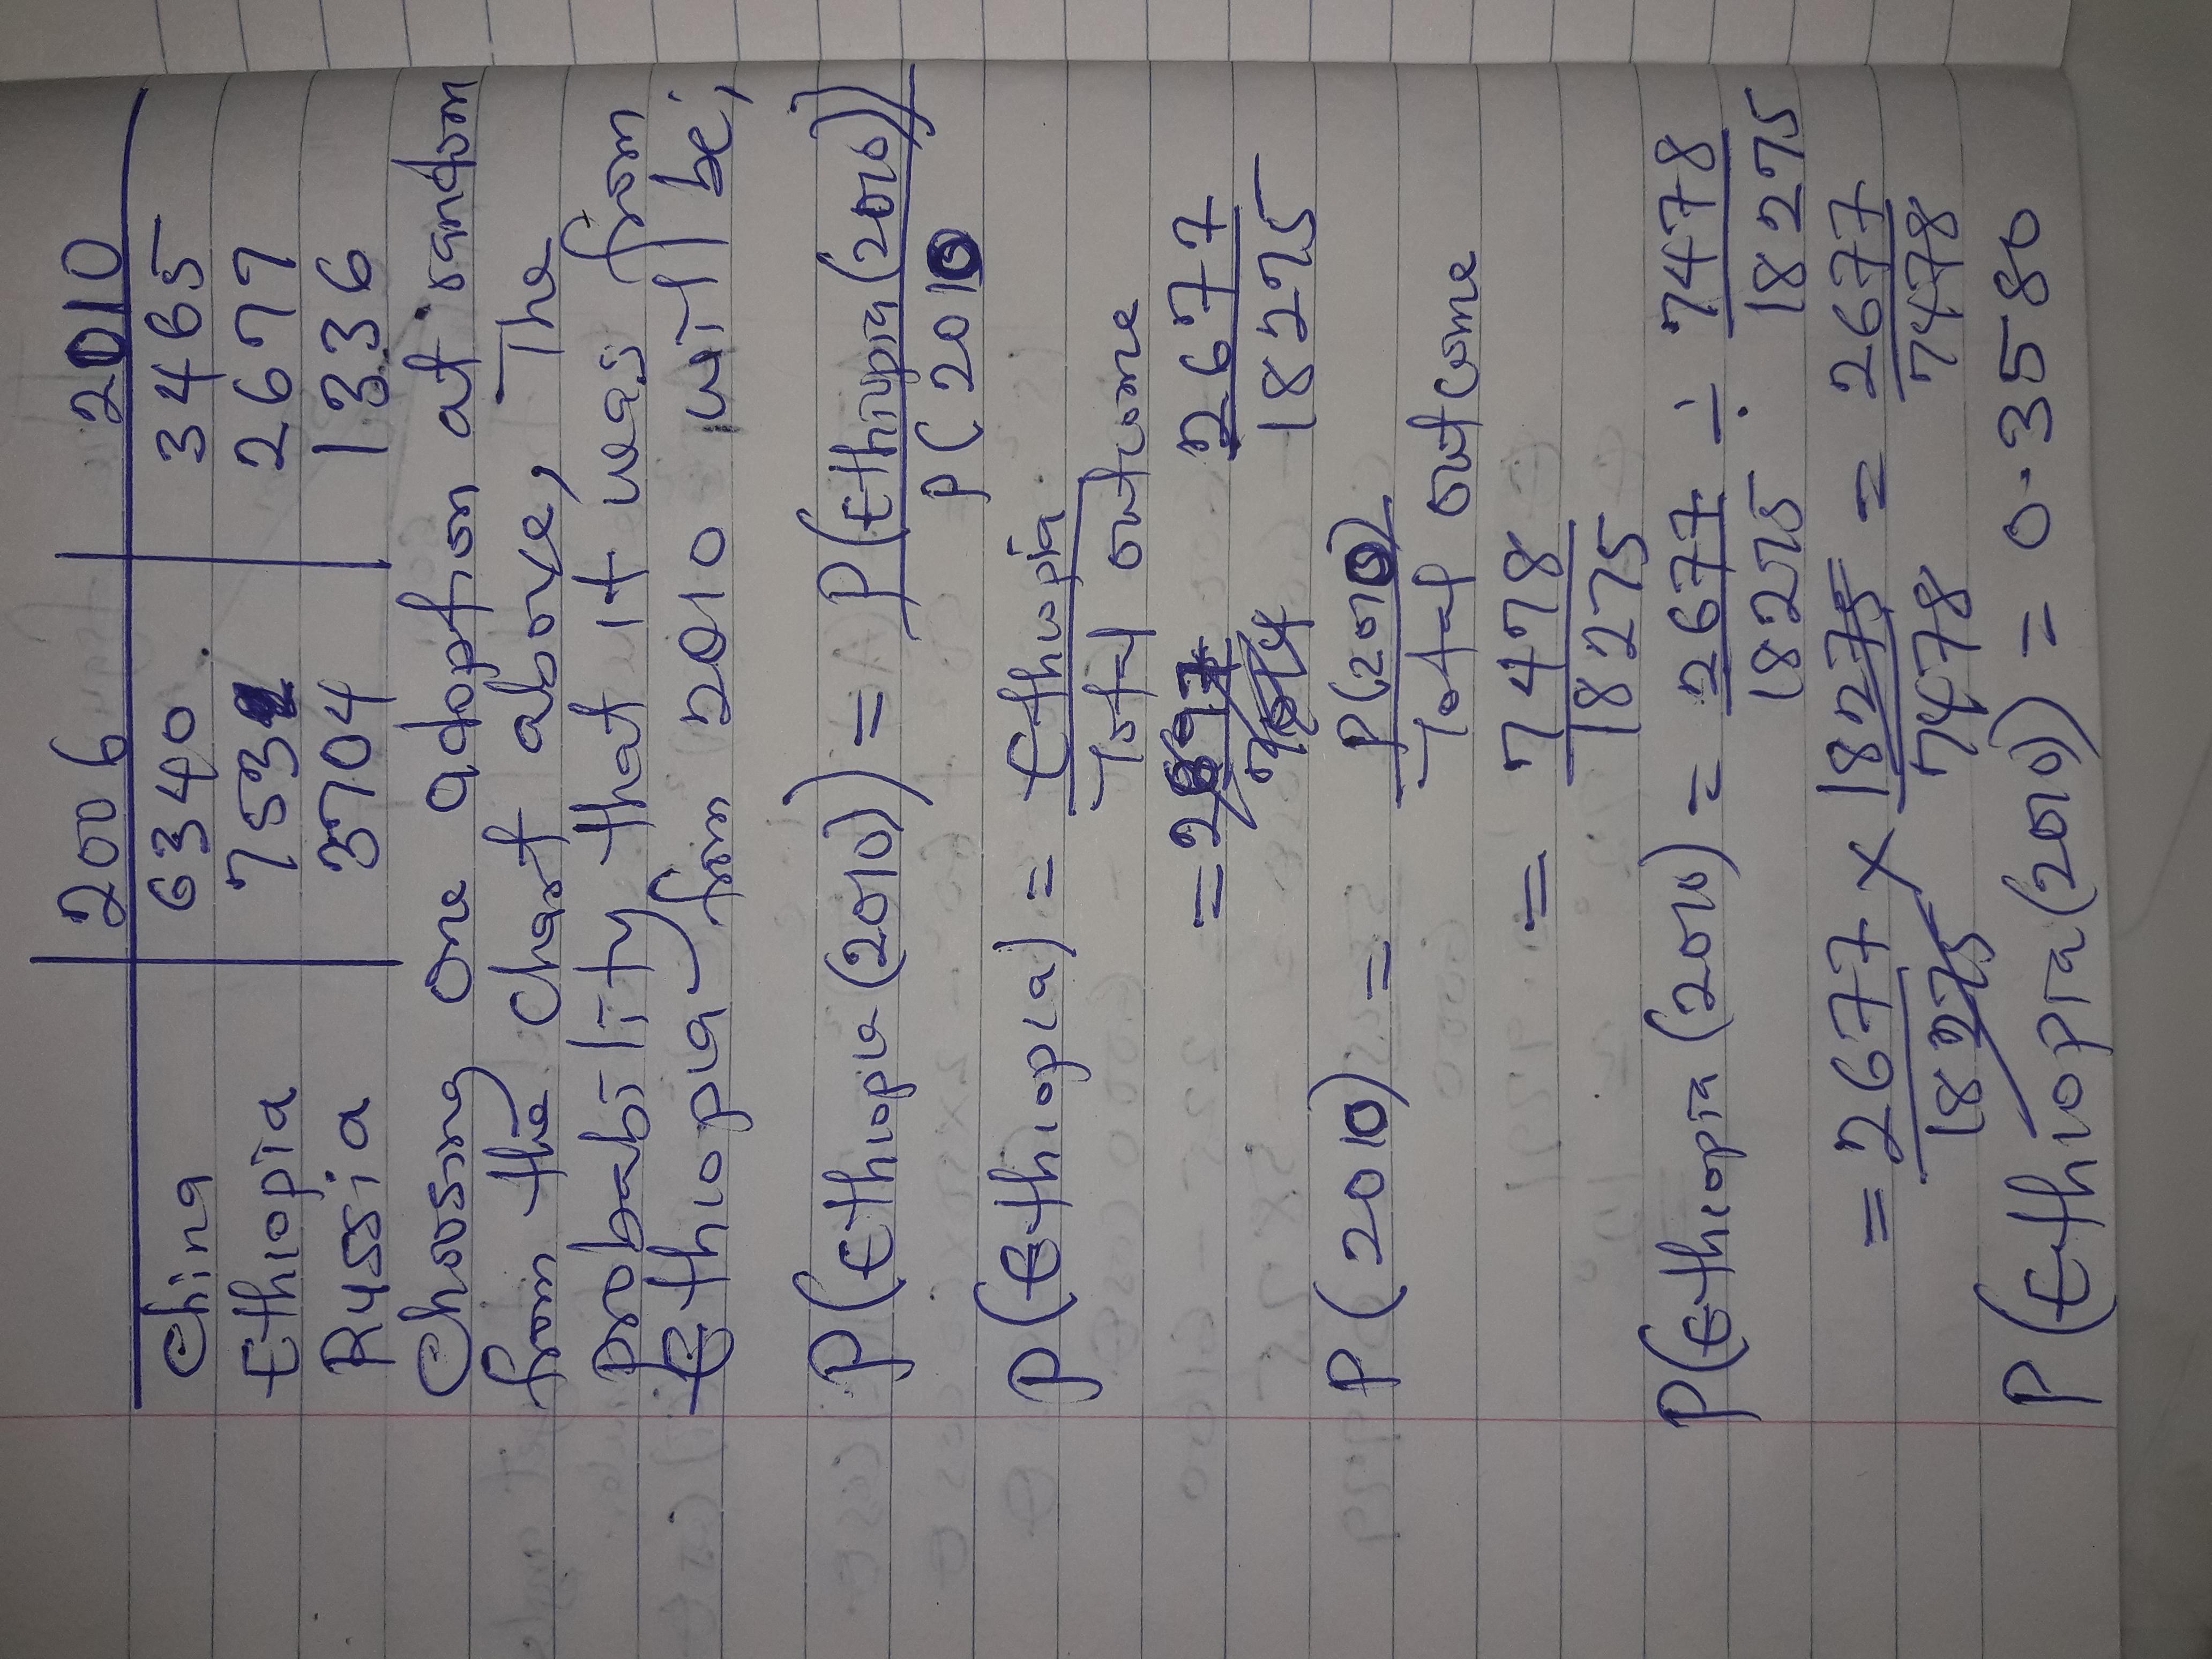 2006 2010
China 6340 3465
Ethiopia 732 2677
Russia 3704 1336
Choosing one adoption at random
from the chart above, The
probability that it was from
Ethiopia from 2010 will be;
P(Ethiopia(2010)) = P(Ethiopia(2010))
P(2010
P(Ethiopia) = Ethiopia
Total outcome
= 2677
18275
P(2010) = P(2010)
Total outcome
= 7478
18275
P(Ethiopia(2010) = 2677 ÷ 7478
18275 18275
= 2677 × 18275 = 2677
18275 7478 7478
P(Ethiopia(2010) = 0.3580